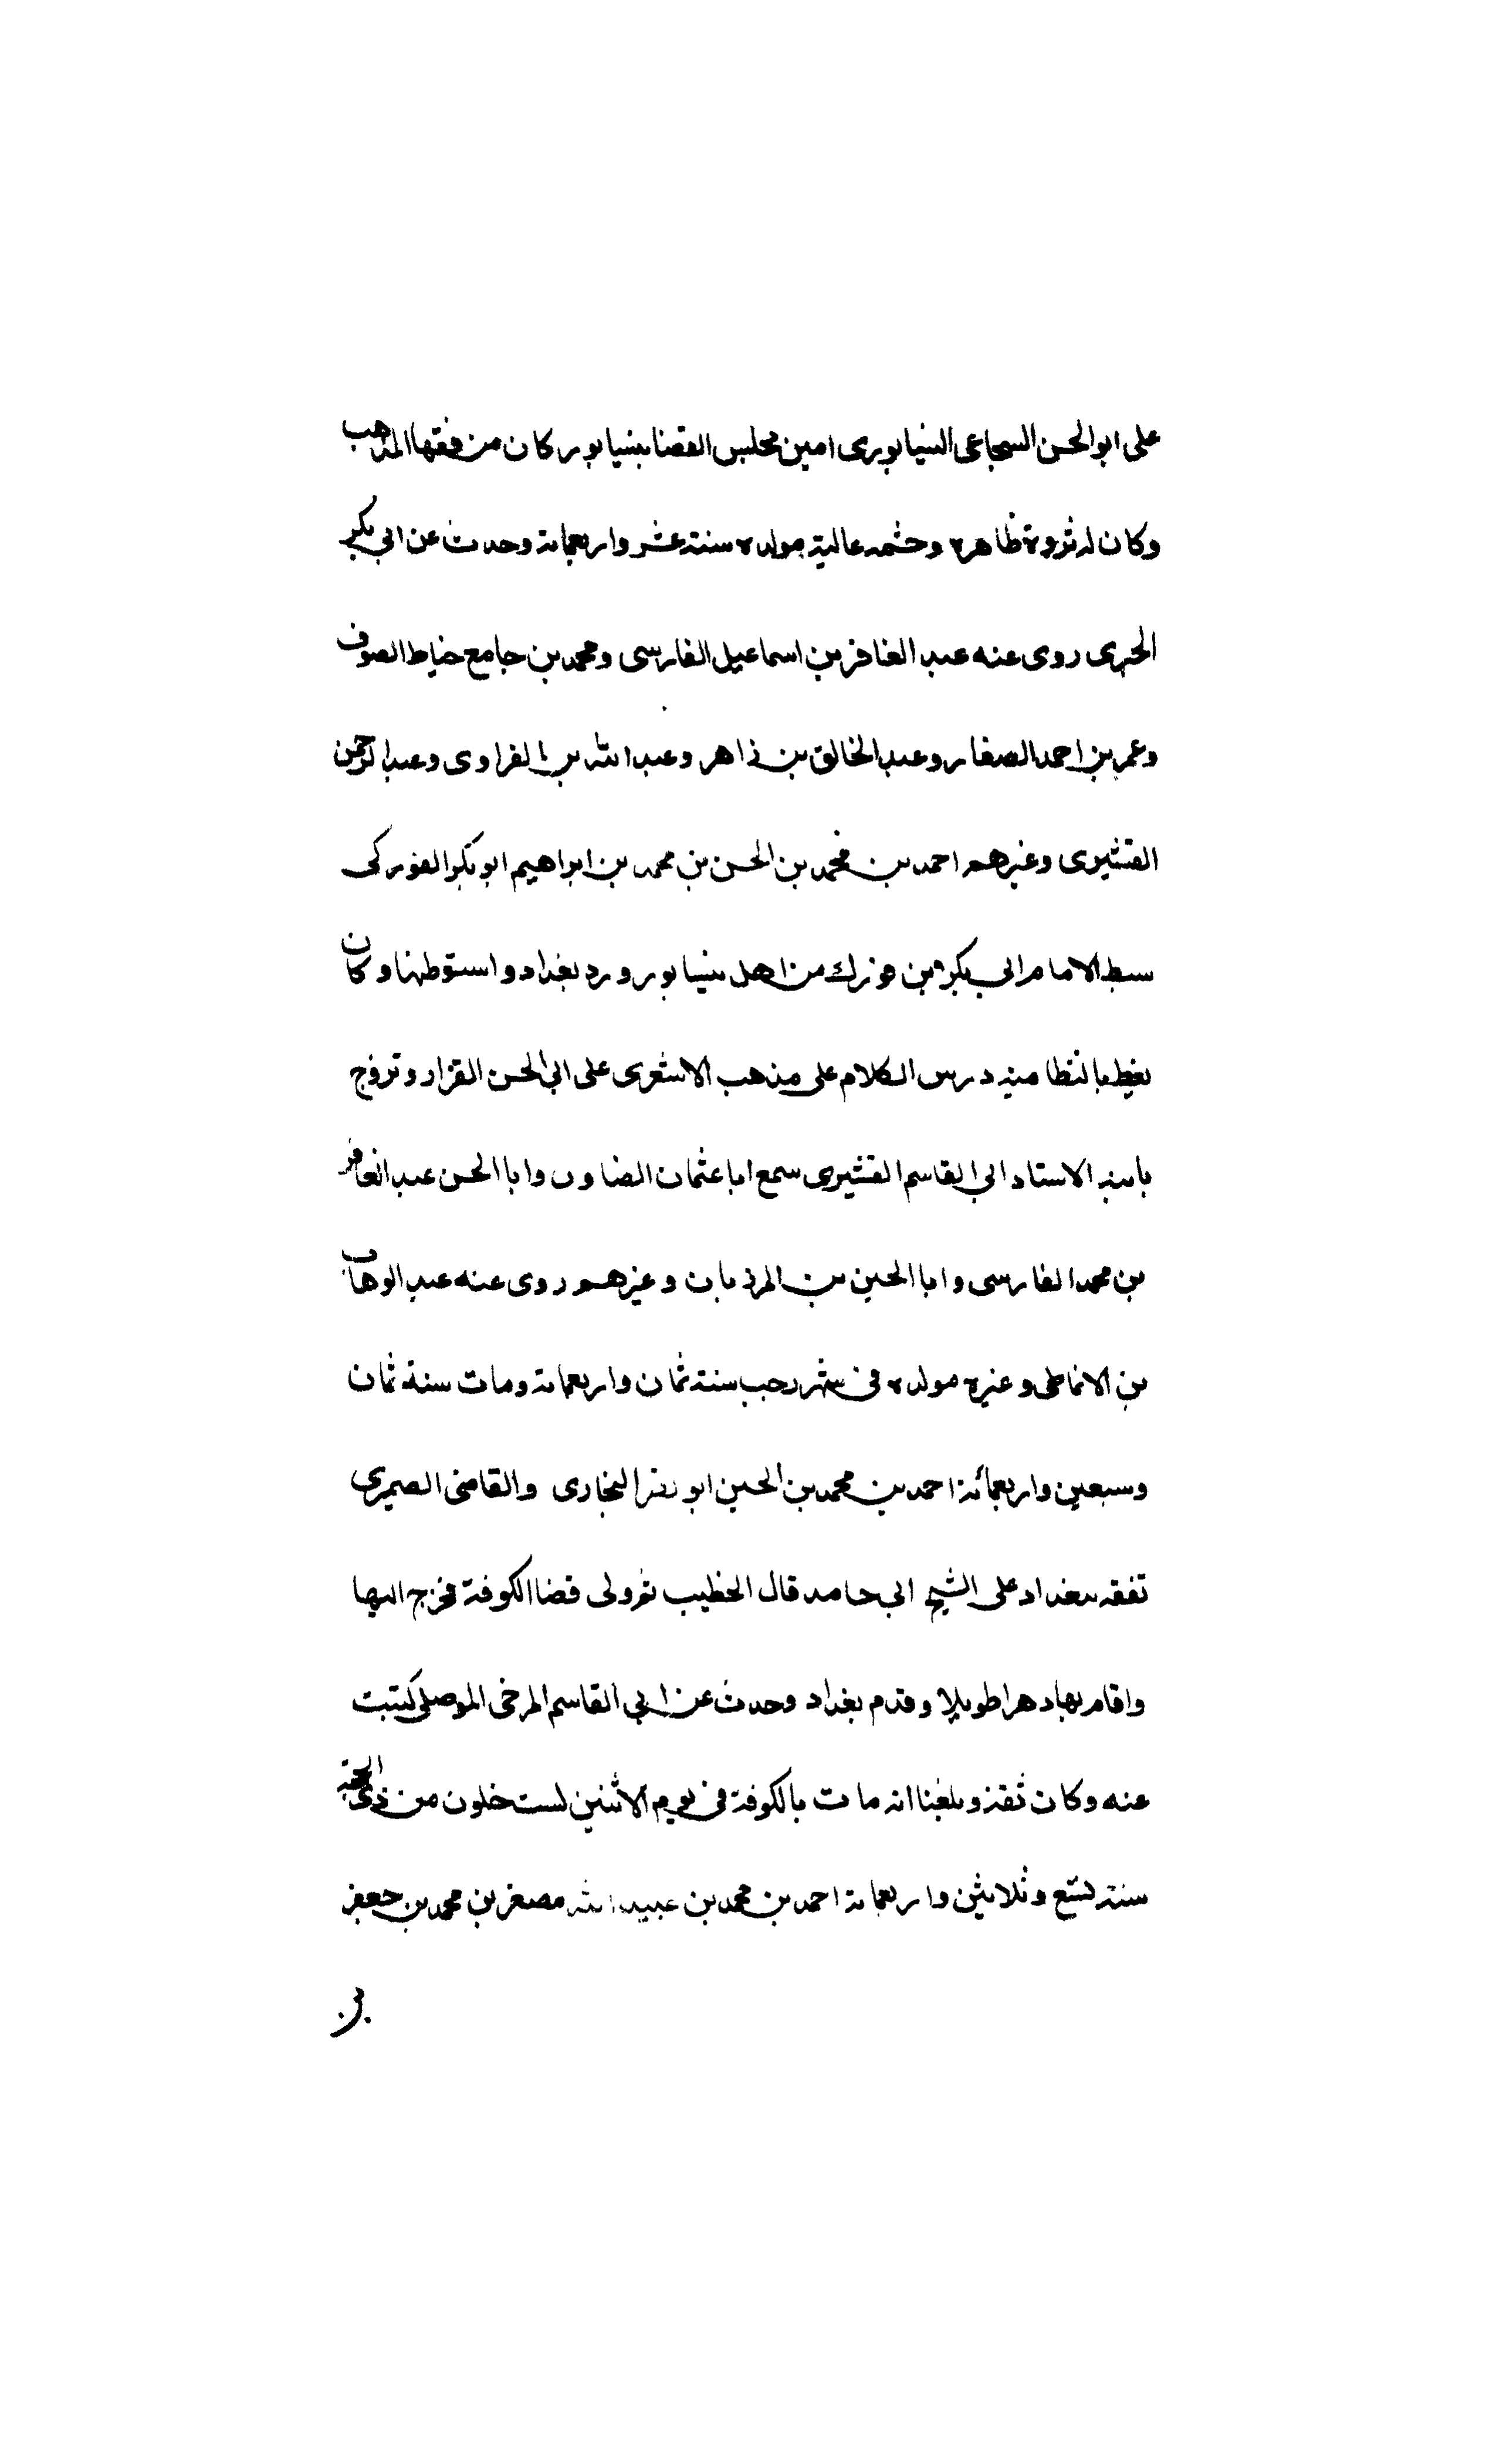 على ابو الحسن السجاعى النيسابورى امين مجلس القضا بنيسابور كان من فقها المذهب
وكان له ثروة ظاهرة وحشمه عالية مولده سنة عشر واربعماية وحدث عن ابي بكر
الحيرى روى عنه عبد الغافر بن اسماعيل الفارسى ومحمد بن جامع خياط الصوف
وعمر بن احمد الصفار وعبد الخالق بن زاهر وعبد الله بن الفراوى وعبد الرحمن
القشيرى وغيرهم احمد بن محمد بن الحسن بن محمد بن ابراهيم ابو بكر الفوركى
سبط الامام ابي بكر بن فورك من اهل نيسابور ورد بغداد واستوطنها وكان
يعظ بالنظامية درس الكلام على مذهب الاشعرى على ابي الحسن القزاز وتزوج
بابنة الاستاد ابي القاسم القشيرى سمع ابا عثمان الصابونى وابا الحسن عبد الغافر
بن محمد الفارسى وابا الحسين بن المرزبان وغيرهم روى عنه عبد الوهاب
بن الانماطى وغيره مولده فى شهر رجب سنة ثمان واربعماية ومات سنة ثمان
وسبعين واربعمائة احمد بن محمد بن الحسين ابو نصر البخارى والقاضى الصيمرى
تفقه ببغداد على الشيخ ابي حامد قال الخطيب ثم ولى قضا الكوفة فخرج اليها
واقام بها دهرا طويلا وقدم بغداد وحدث عن ابي القاسم المرخى الموصلى كتبت
عنه وكان ثقة وبلغنا انه مات بالكوفة فى يوم الاثنين لست خلون من ذى الحجة
سنة تسع وثلاثين واربعماية احمد بن محمد بن عبيد الله مصغر بن محمد بن جعفر
بن